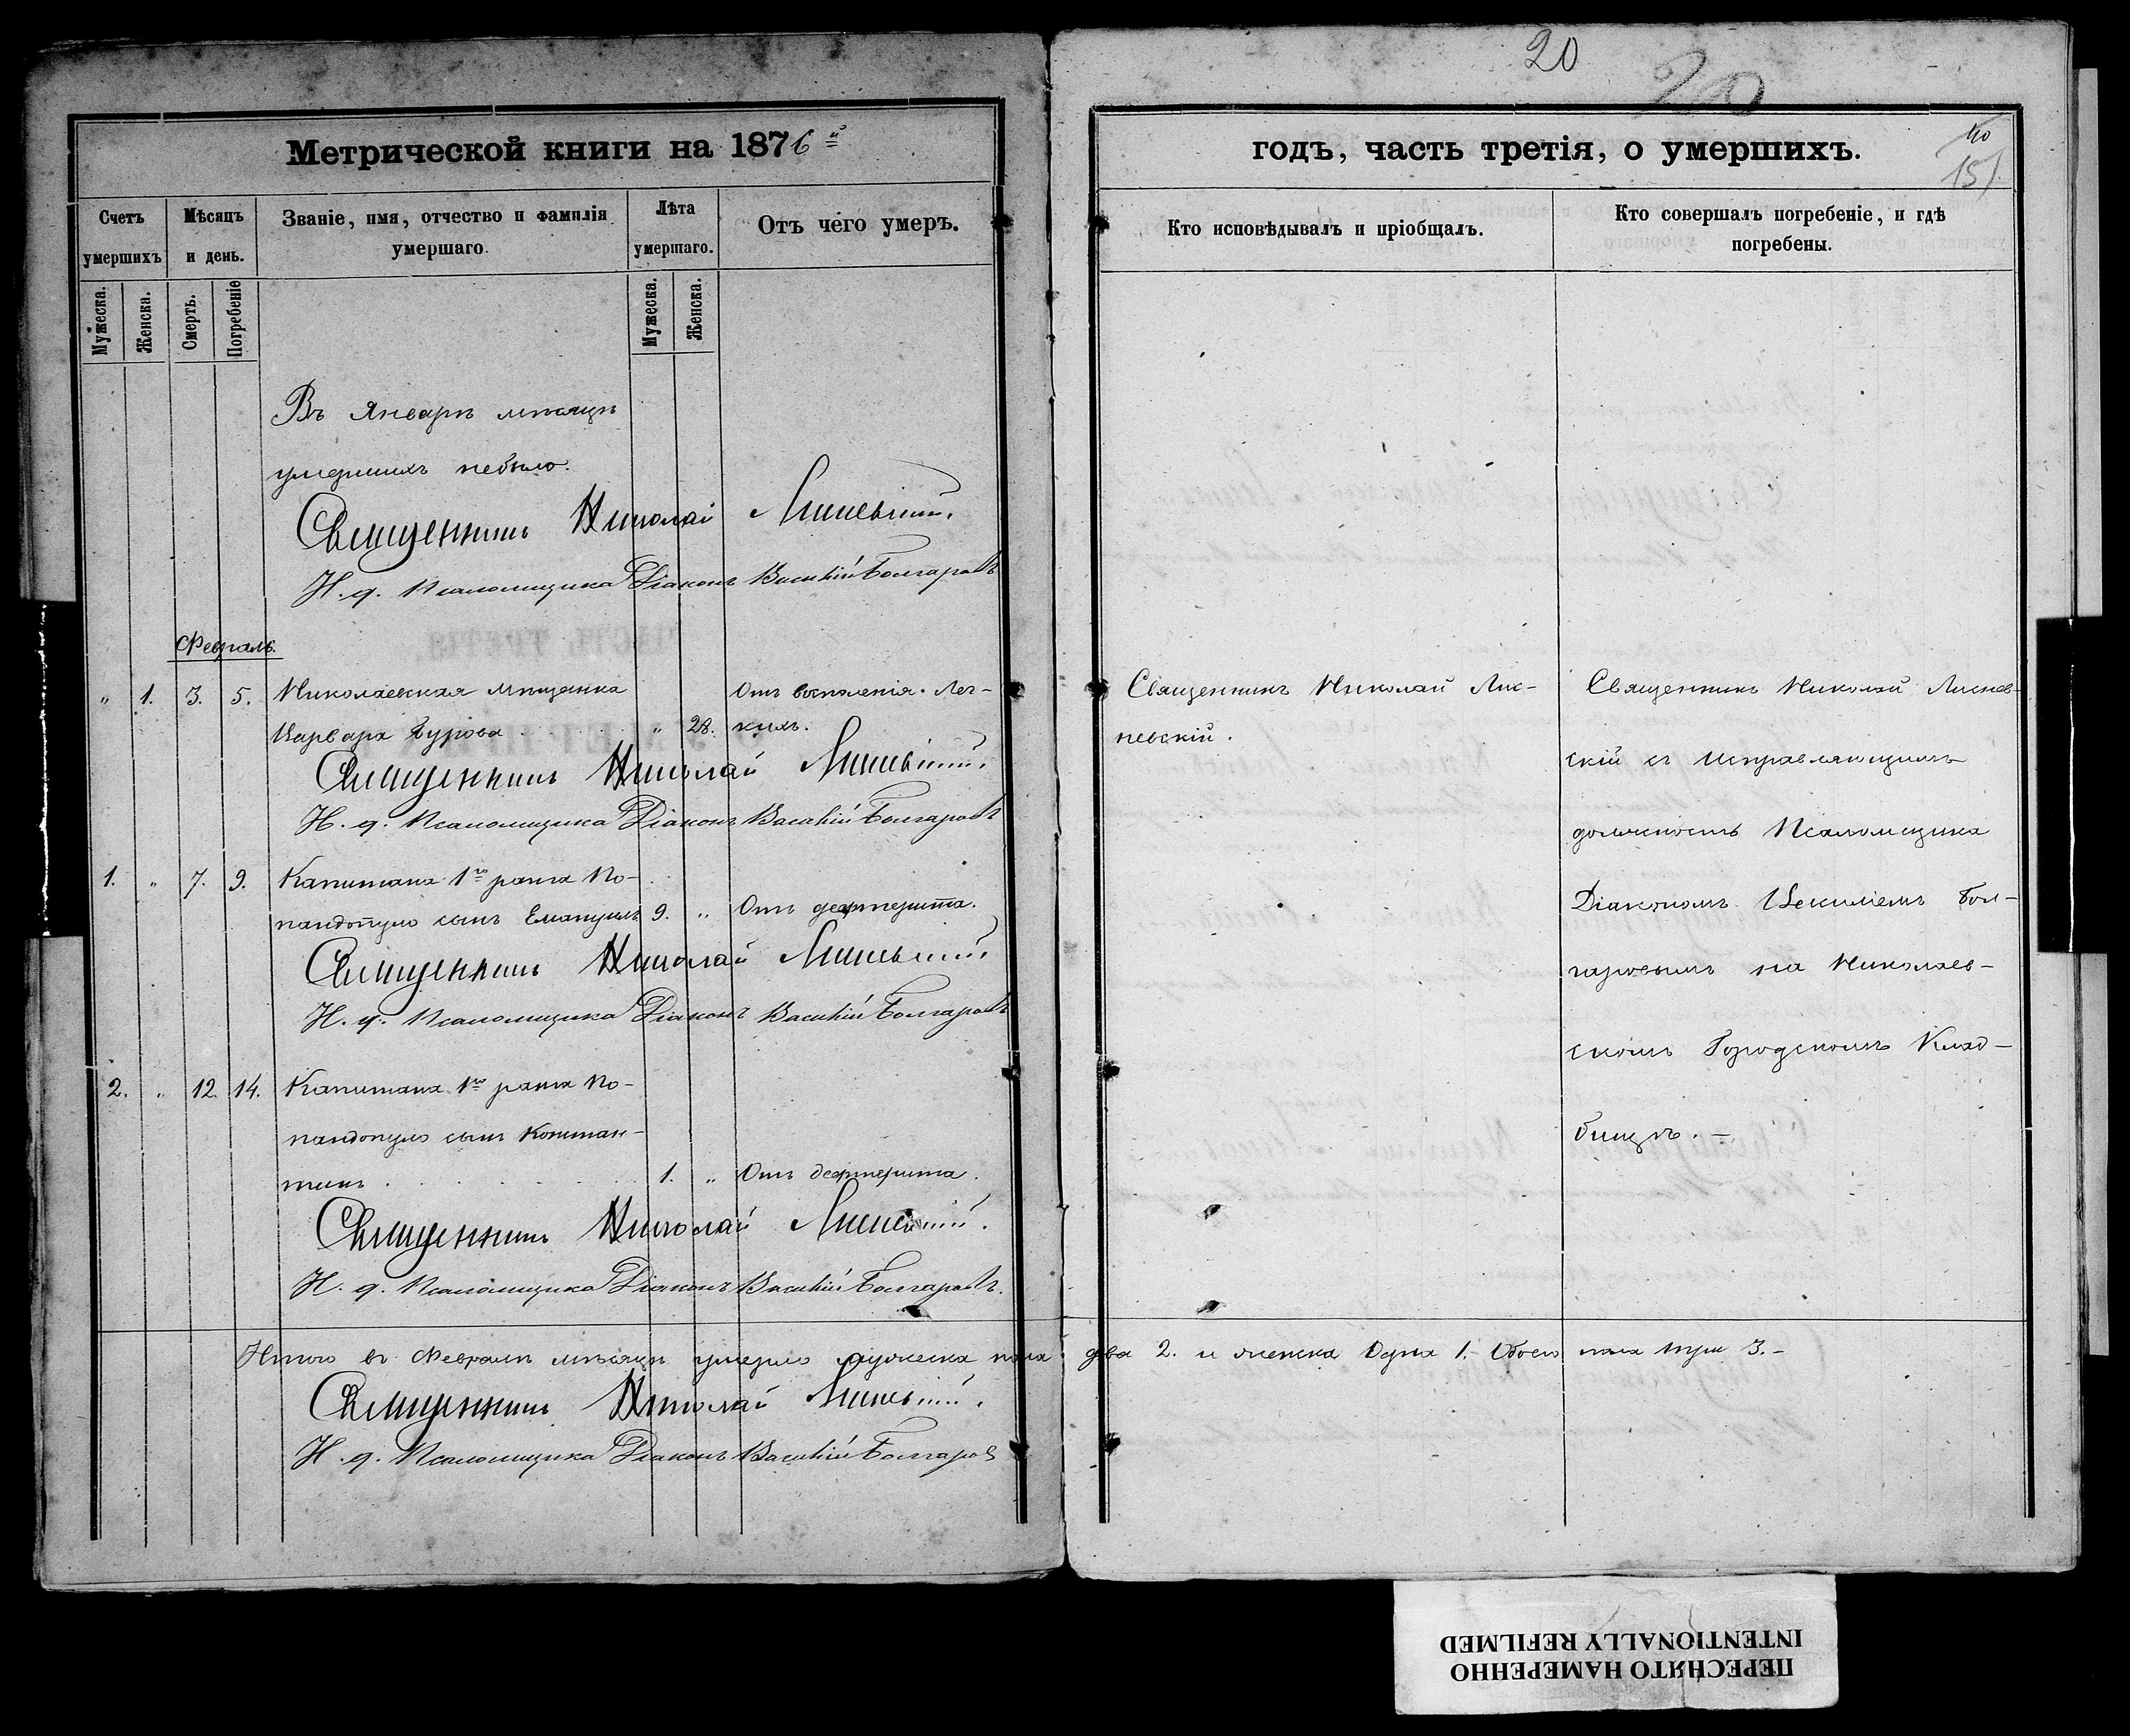 20
20
Метрической книги на 1876й
годъ, часть третія, о умершихъ.
40
151
Счетъ умершихъ
Мѣсяцъ и день.
Званіе, имя, отчество и фамилія умершаго.
Лѣта умершаго.
Отъ чего умеръ.
Кто исповѣдывалъ и пріобщалъ.
Кто совершалъ погребеніе, и гдѣ погребены.
Мужеска.
Женска.
Смерть.
Погребеніе
Мужеска.
Женска.
Въ Январѣ мѣсяцѣ
умершихъ небыло.
Священникъ Николай Лисневскій.
И. д. Псаломщика Діаконъ Василій Болгаровъ
Февраль.
" 1. 3. 5. Николаевская мѣщанка
Варвара Гурова " 28.
Отъ воспаленія Лег-
кихъ.
Священникъ Николай Лисневскій.
И. д. Псаломщика Діаконъ Василій Болгаровъ
1. " 7. 9. Капитана 1го ранга По-
пандопуло сынъ Емануилъ 9. " Отъ дефтерита.
Священникъ Николай Лисневскій.
И. д. Псаломщика Діаконъ Василій Болгаровъ
2. " 12. 14. Капитана 1го ранга По-
пандопуло сынъ Констан-
тинъ 1. " Отъ дефтерита.
Священникъ Николай Лисневскій.
И. д. Псаломщика Діаконъ Василій Болгаровъ.
Священникъ Николай Лис-
невскій.
Священникъ Николай Лиснев-
скій съ Исправляющимъ
должность Псаломщика
Діакономъ Василіемъ Бол-
гаровымъ на Николаев-
скомъ Городскомъ Клад-
бищѣ. –
Итого въ Февралѣ мѣсяцѣ умерло мужеска пола два 2. и женска Одна 1. Обоего пола три 3. –
Священникъ Николай Лисневскій.
И. д. Псаломщика Діаконъ Василій Болгаровъ
ПЕРЕСНЯТО НАМЕРЕННО
INTENTIONALLY REFILMED